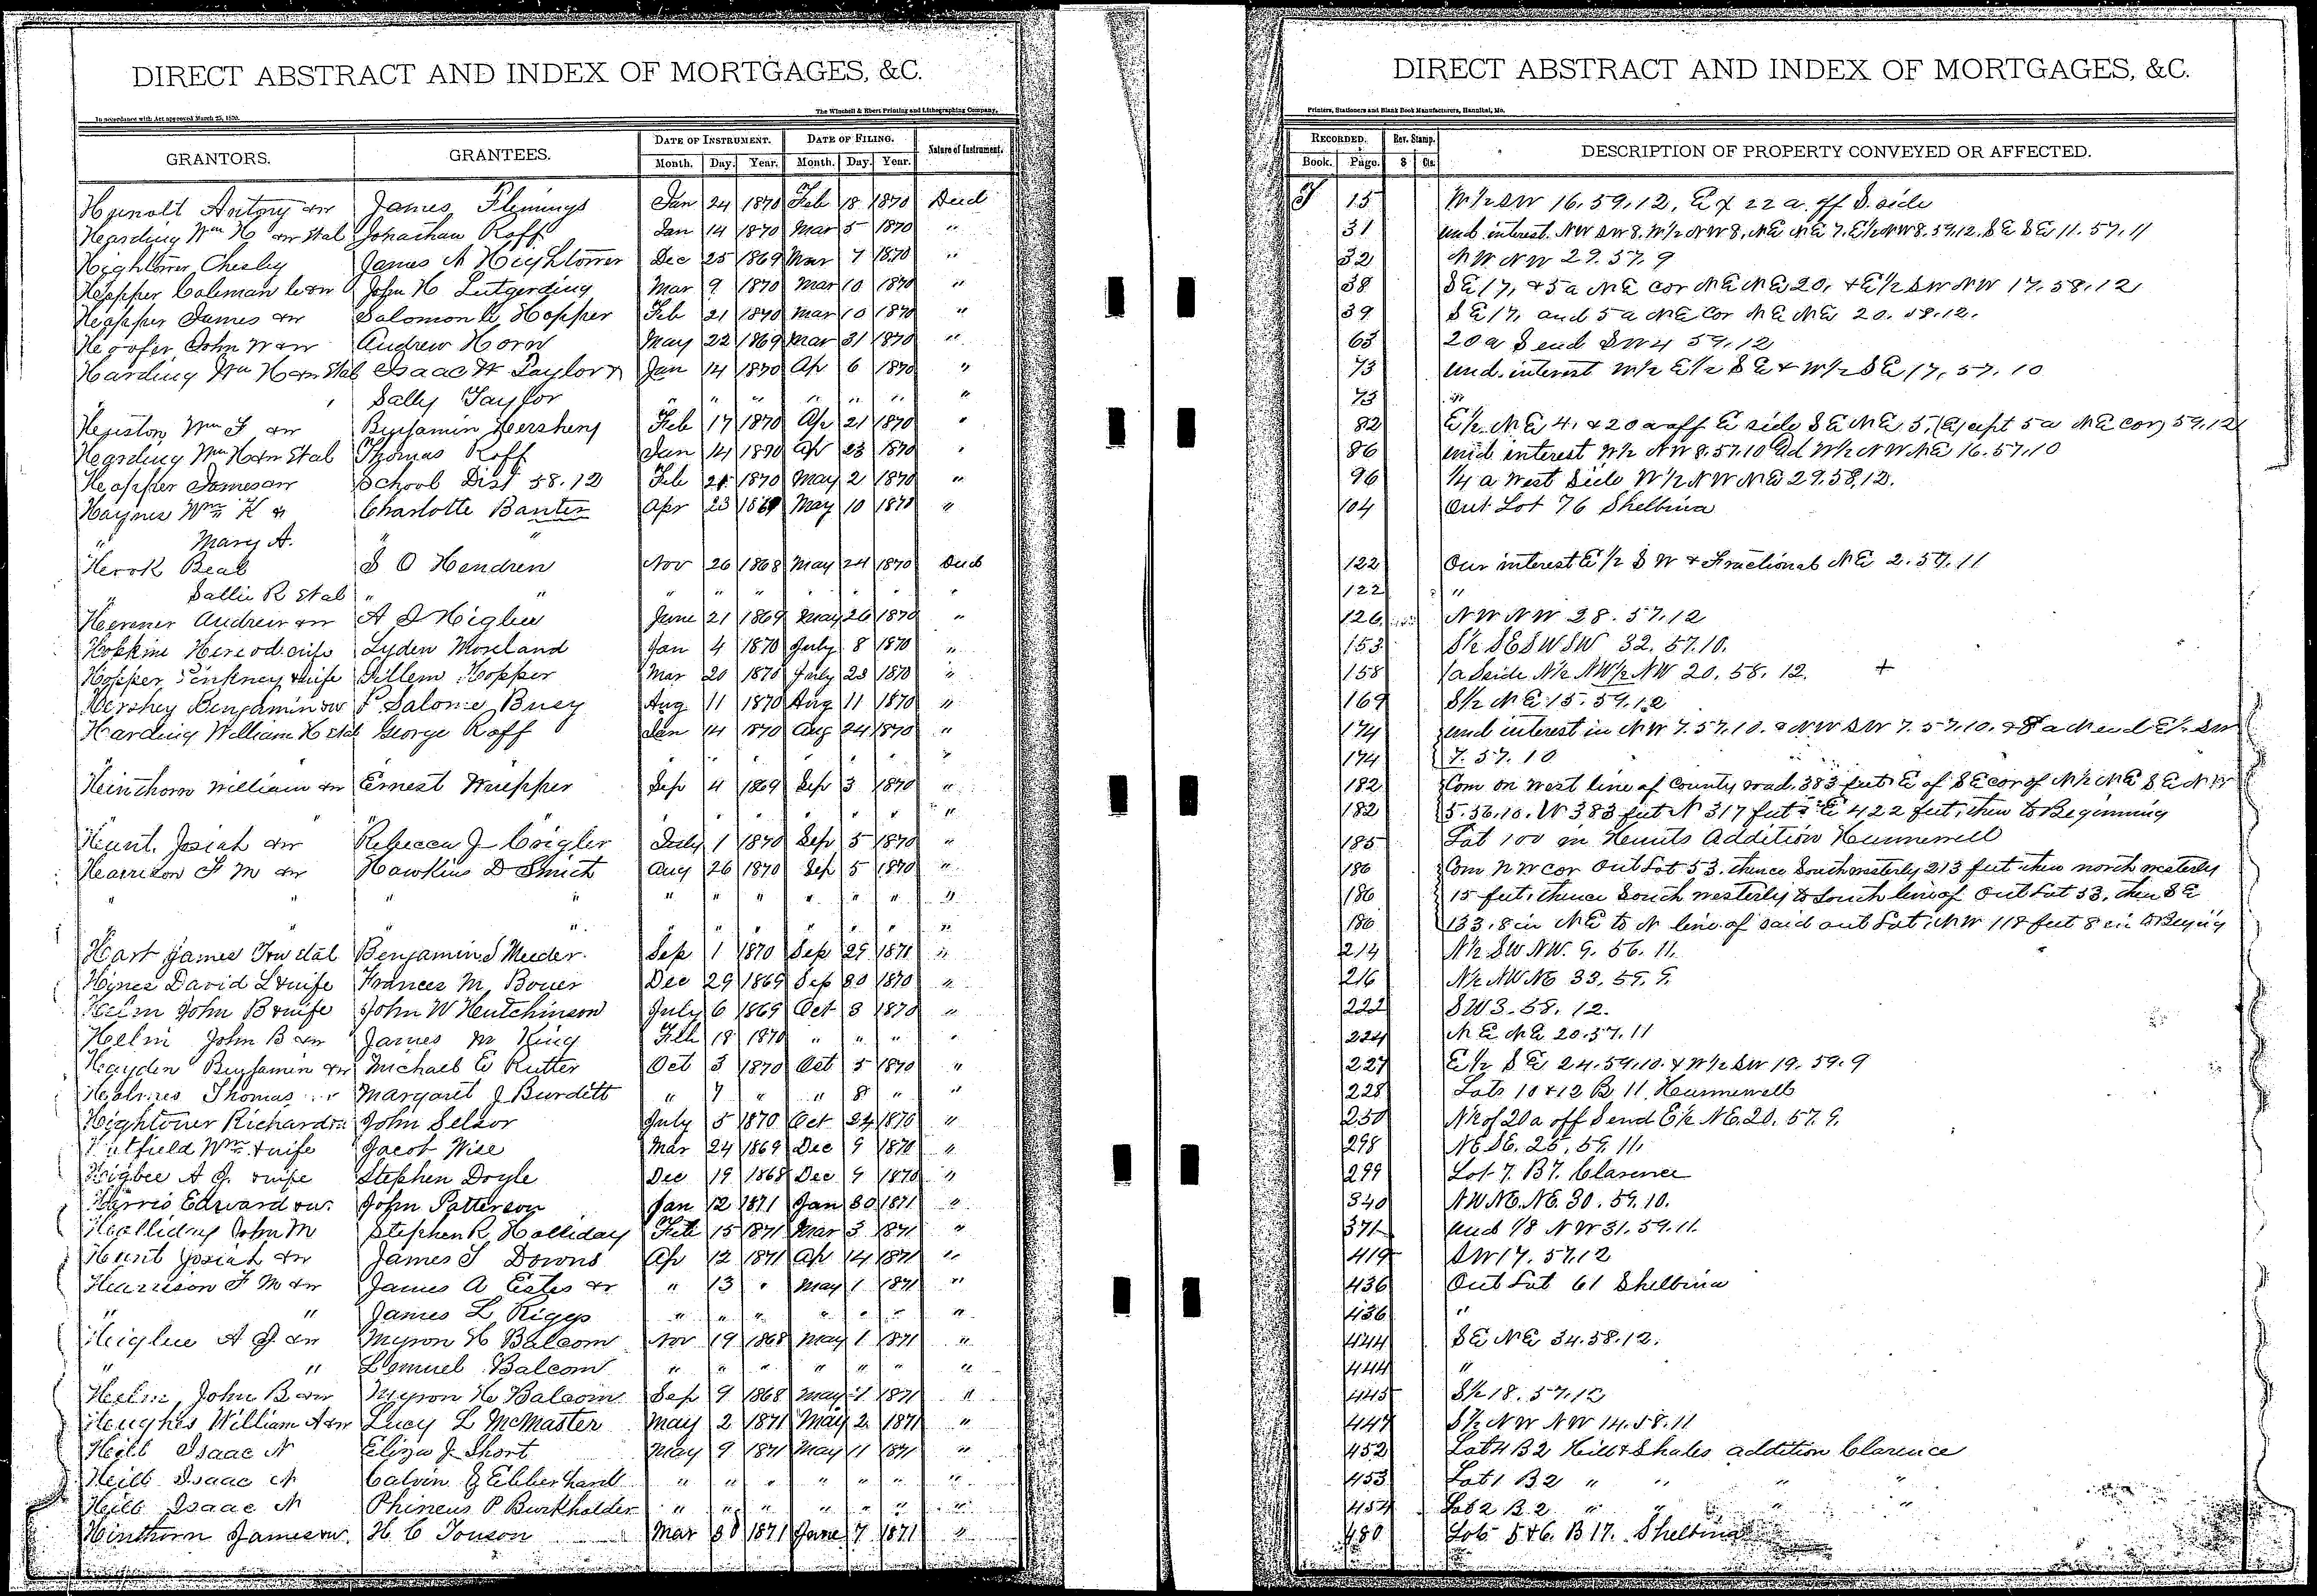 DIRECT ABSTRACT AND INDEX OF MORTGAGES, &C.
In accordance with Act approved March 25, 1870.
The Winchell & Ebert Printing and Lithographing Company,
GRANTORS. GRANTEES. DATE OF INSTRUMENT. DATE OF FILING. Nature of Instrument.
Month. Day. Year. Month. Day. Year.
Antony &w James Flemings Jan 24 1870 Feb 18 1870 Deed
Harding Wm H &w et al Jonathan Roff Jan 14 1870 Mar 5 1870 "
Hightower Chesley James A Hightower Dec 25 1869 Mar 7 1870 "
Hopper Coleman C &w John H Lutgerding Mar 9 1870 Mar 10 1870 "
Hopper James &w Salomon C Hopper Feb 21 1870 Mar 10 1870 "
Hoofer John W &w Andrew Horn May 22 1869 Mar 31 1870 "
Harding Wm H &w et al Isaac W Taylor & Jan 14 1870 Ap 6 1870 "
" Sally Taylor " " " " " " "
Huston Wm F &w Benjamin Hershey Feb 17 1870 Ap 21 1870 "
Harding Wm H &w et al Thomas Roff Jan 14 1870 Ap 23 1870 "
Hopper James &w School Dist 58.12 Feb 21 1870 May 2 1870 "
Haynes Wm K & Charlotte Banter Apr 23 1869 May 10 1870 "
" Mary A. " "
Hook Beal S O Hendren Nov 26 1868 May 24 1870 Deed
" Sallie R et al " " " " " " " " "
Andrew &w A J Higbee June 21 1869 May 26 1870 "
Hopkins Herod & wife Lyden Moreland Jan 4 1870 July 8 1870 "
Hopper Pinkney & wife Gillem Hopper Mar 20 1870 July 23 1870 "
Hershey Benjamin &w P Salome Busy Aug 11 1870 Aug 11 1870 "
Harding William H et al George Roff Jan 14 1870 Aug 24 1870 "
" " " " " " " "
Hinthorn William &w Ernest Wuepper Sep 4 1869 Sep 3 1870 "
" " " " " " " " "
Hunt, Josiah &w Rebecca J Crigler July 1 1870 Sep 5 1870 "
Harrison F M &w Hawkins D Smith Aug 26 1870 Sep 5 1870 "
" " " " " " " " " " "
" " " " " " " " " "
Hart James F &w et al Benjamin S Meeder. Sep 1 1870 Sep 29 1870 "
Hines David L & wife Frances M, Bouer Dec 29 1869 Sep 30 1870 "
Helm John B & wife John W Hutchinson July 6 1869 Oct 3 1870 "
Helm John B &w James M King Feb 18 1870 " " " "
Hayden Benjamin &w Michael E Rutter Oct 3 1870 Oct 5 1870 "
Holmes Thomas Margaret J Burdett " 7 " " 8 " "
Hightower Richard &w John Selsor July 5 1870 Oct 24 1870 "
Hatfield Wm & wife Jacob Wise Mar 24 1869 Dec 9 1870 "
Higbee A J. & wife Stephen Doyle Dec 19 1868 Dec 9 1870 "
Harris Edward &w. John Patterson Jan 12 1871 Jan 30 1871 "
Holliday John M Stephen R Holliday Feb 15 1871 Mar 3 1871 "
Hunt Josiah &w James S Downs Ap 12 1871 Ap 14 1871 "
Harrison F M &w James A Estes & " 13 " May 1 1871 "
" " James L Riggs " " " " " " "
Higbee A J &w Myron H Balcom Nov 19 1868 May 1 1871 "
" " Lemuel Balcom " " " " " " "
Helm, John B &w Myron H Balcom Sep 9 1868 May 1 1871 "
Hughes William A &w Lucy L McMaster May 2 1871 May 2 1871 "
Hill Isaac N Eliza J Short May 9 1871 May 11 1871 "
Hill Isaac N Calvin G Ebberhard " " " " " " "
Hill Isaac N Phineus P Burkholder " " " " " " "
Hinthorn James &w. H C Tonson Mar 30 1871 June 7 1871 "
DIRECT ABSTRACT AND INDEX OF MORTGAGES, &C.
Printers, Stationers and Blank Book Manufacturers, Hannibal, Mo.
RECORDED. Rev. Stamp. DESCRIPTION OF PROPERTY CONVEYED OR AFFECTED.
Book. Page. $ Cts.
15 W½ SW 16.59.12, Ex 22 a. off S. side
31 und interest. NW SW 8. W½ NW 8, NE NE 7. E½ NW 8. 57.12. SE SE 11.57.11
32 NW NW 29.57.9
38 SE 17, & 5 a NE cor NE NE 20, & E½ SW NW 17.58.12
39 SE 17, and 5 a NE Cor NE NE 20.58.12.
63 20 a S end SW 4 59.12
73 und. interest W½ E½ SE & W½ SE 17, 57.10
73 "
82 E½ NE 4. & 20 a off E side SE NE 5, (Except 5 a NE cor) 59.12
86 und interest W½ NW 8.57.10 Ad W½ NW NE 16.57.10
96 ¼ a West Side W½ NW NE 29.58.12.
104 Out Lot 76 Shelbina
122 Our interest E½ SW & Fractional NE 2.57.11
122 "
126 NW NW 28.57.12
153 S½ SE SW SW 32.57.10.
158 1 a S side N½ NW½ NW 20.58.12. +
169 S½ NE 15.59.12
174 und interest in NW 7.57.10. & NW SW 7.57.10. & 8 a N end E½ SW
174 7.57.10
182 Com on West line of County road, 383 feet E of SE cor of N½ NE SE NW
182 5.56.10. W 383 feet N 317 feet E 422 feet, then to Beginning
185 Lot 100 in Hunts Addition Hunnewell
186 Com NW cor Out Lot 53. thence Southwesterly 213 feet then north westerly
186 15 feet, thence South westerly to South line of Out Lot 53, then SE
186 133.8 in NE to N line of said out Lot, NW 118 feet 8 in to Beging
214 N½ SW NW. 9.56.11.
216 N½ NW NE 33.59.9.
222 SW 3.58.12.
224 NE NE 20.57.11
227 E½ SE 24.59.10. & W½ SW 19.59.9
228 Lots 10 & 12 B 11 Hunnewell
250 N½ of 20 a off S end E½ NE. 20.57.9.
298 NE SE. 25.59.11.
299 Lot 7. B 7. Clarence
340 NW NE. NE. 30.59.10.
371 und ⅛ NW 31.59.11.
419 SW 17.57.12
436 Out Lot 61 Shelbina
436 "
444 SE NE 34.58.12.
444 "
445 S½ 18.57.12
447 S½ NW NW 14.58.11
452 Lot 4 B 2 Hill & Shales addition Clarence
453 Lot 1 B 2 " " " "
454 Lot 2 B 2 " " " "
480 Lots 5 & 6. B 17. Shelbina